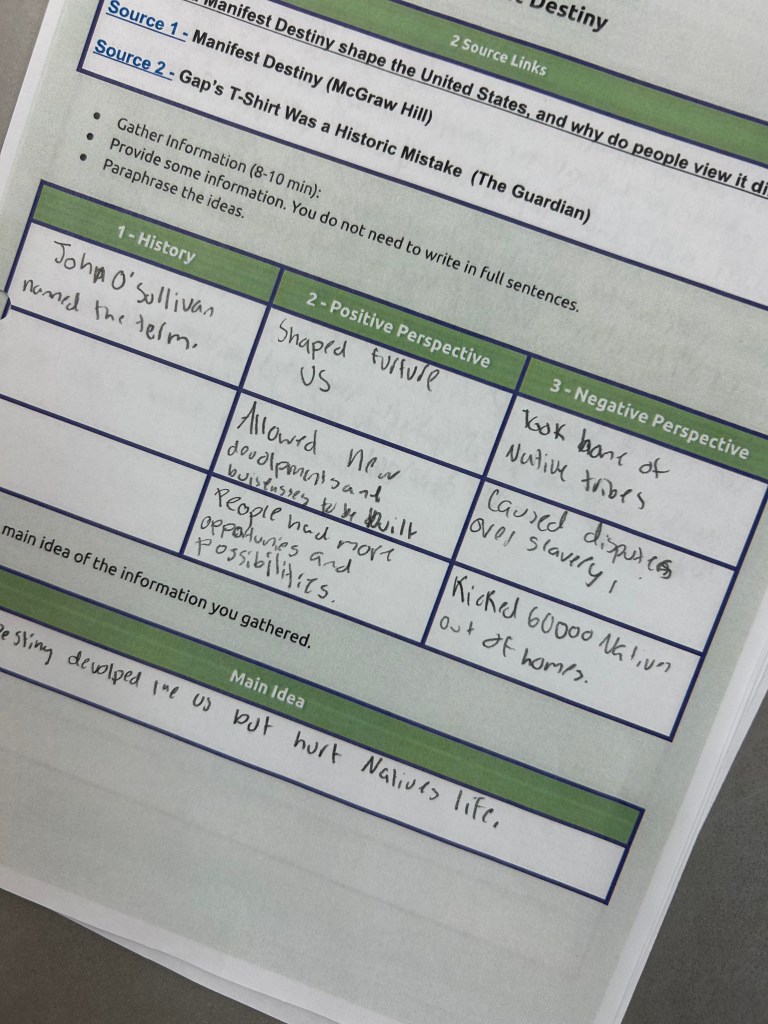 t Destiny
2 Source Links
Manifest Destiny shape the United States, and why do people view it di
Source 1 - Manifest Destiny (McGraw Hill)
Source 2 - Gap's T-Shirt Was a Historic Mistake (The Guardian)
• Gather Information (8-10 min):
• Provide some information. You do not need to write in full sentences.
• Paraphrase the ideas.
1 - History
John O'Sullivan
named the term.
2 - Positive Perspective
Shaped furture
US
Allowed new
devolpments and
buisnesses to be built
People had more
opportunies and
possibilities.
3 - Negative Perspective
Took home of
Native tribes
Caused disputes
over slavery,
Kicked 60000 Natives
out of homes.
main idea of the information you gathered.
Main Idea
estiny devolped the US but hurt Natives life.